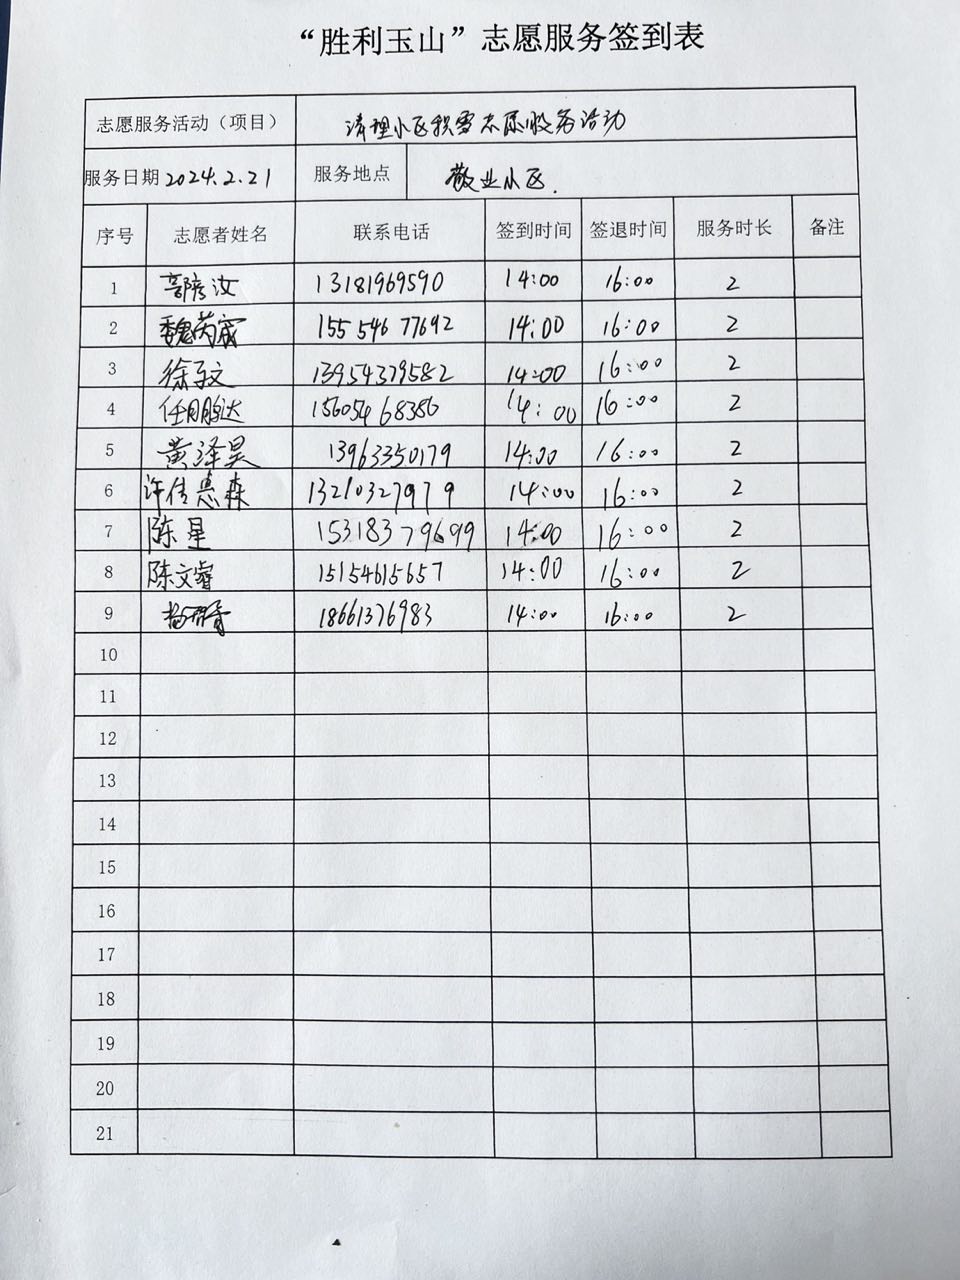 “胜利玉山”志愿服务签到表
志愿服务活动（项目） 清理小区积雪志愿服务活动
服务日期 2024.2.21 服务地点 敬业小区.
序号 志愿者姓名 联系电话 签到时间 签退时间 服务时长 备注
1 汝 13181969590 14:00 16:00 2
2 魏芮宬 15554677692 14:00 16:00 2
3 徐子文 13954379582 14:00 16:00 2
4 任鹏达 15605468386 14:00 16:00 2
5 黄泽昊 13963350179 14:00 16:00 2
6 许佳惠森 13210327979 14:00 16:00 2
7 陈星 15318379699 14:00 16:00 2
8 陈文睿 15154615657 14:00 16:00 2
9 18661376983 14:00 16:00 2
10
11
12
13
14
15
16
17
18
19
20
21